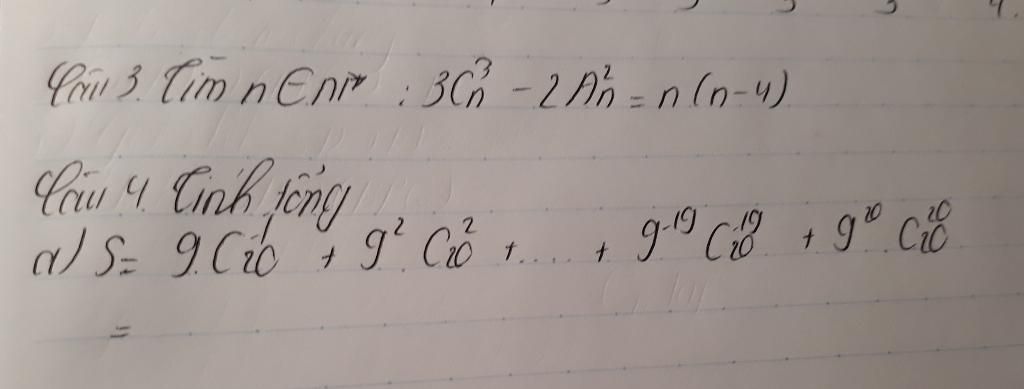 Câu 3. Tìm n ∈ N* : 3C³ₙ - 2A²ₙ = n(n-4)
Câu 4. Tính tổng
a) S = 9.C¹₂₀ + 9² C²₂₀ + .... + 9¹⁹ C¹⁹₂₀ + 9²⁰ C²⁰₂₀
=